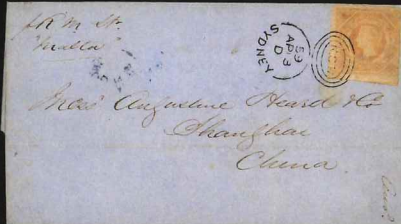 pr R. M. St.
"Malta"
SYDNEY
AP 8
D
59
Mess Augustine Heard & Co
Shanghai
China